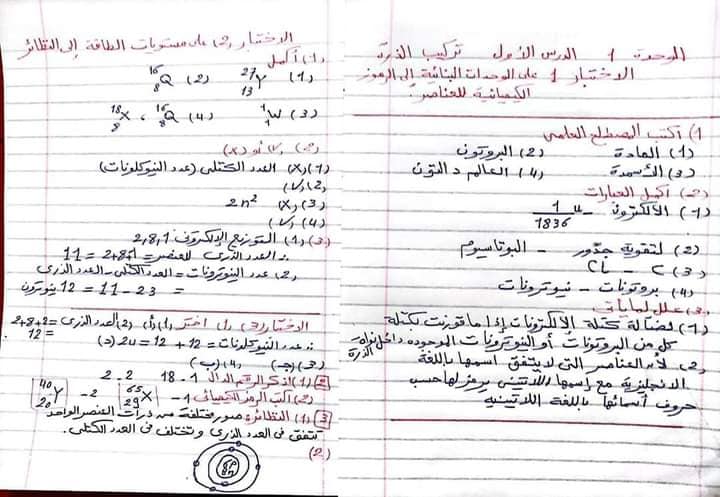 الوحدة 1 الدرس الأول تركيب الذرة
الاختبار 1 على الوحدات البنائية إلى الرموز
الكيميائية للعناصر
1) اكتب المصطلح العلمي
(1) المادة (2) البروتون
(3) الأسمدة (4) العالم دالتون
(2) أكمل العبارات
(1) الألكترون - 1/1836 u
(2) لتقوية جذور - البوتاسيوم
(3) C - CL
(4) بروتونات - نيوترونات
(3) علل لما يأتي
(1) لضآلة كتلة الألكترونات إذا ما قورنت بكتلة
كل من البروتونات أو النيوترونات الموجوده داخل نواه الذرة
(2) لأن العناصر التى لا يتفق اسمها باللغة
الانجليزية مع اسمها اللاتينى يرمز لها حسب
حروف أسمائها باللغة اللاتينيه
الاختبار (2) على مستويات الطاقة إلى النظائر
(1) أكمل
(1) 27 13 Y (2) 16 8 Q
(3) 1 1 W (4) 16 8 Q ، 18 8 X
(2) √ أو (x)
(1) (x) العدد الكتلى (عدد النيوكلونات)
(2) (√)
(3) (x) 2n²
(4) (√)
(3) (1) التوزيع الإلكترونى 2,8,1
∴ العدد الذرى للعنصر = 1+8+2 = 11
(2) عدد النيوترونات = العدد الكتلى - العدد الذرى
= 23 - 11 = 12 نيوترون
الاختبار (3) (1) اختر (1) (أ) (2) العدد الذرى = 2+8+2 = 12
∴ عدد النيوكلونات = 12 + 12 = 24 (د)
(3) (جـ) (4) (ب)
2 (1) اذكر الرقم الدال 1- 18 2- 2
(2) اكتب الرمز الكيميائى 1- 65 29 X 2- 40 20 Y
3 (1) النظائر: صور مختلفة من ذرات العنصر الواحد
تتفق فى العدد الذرى وتختلف فى العدد الكتلى.
(2)
8p
8n